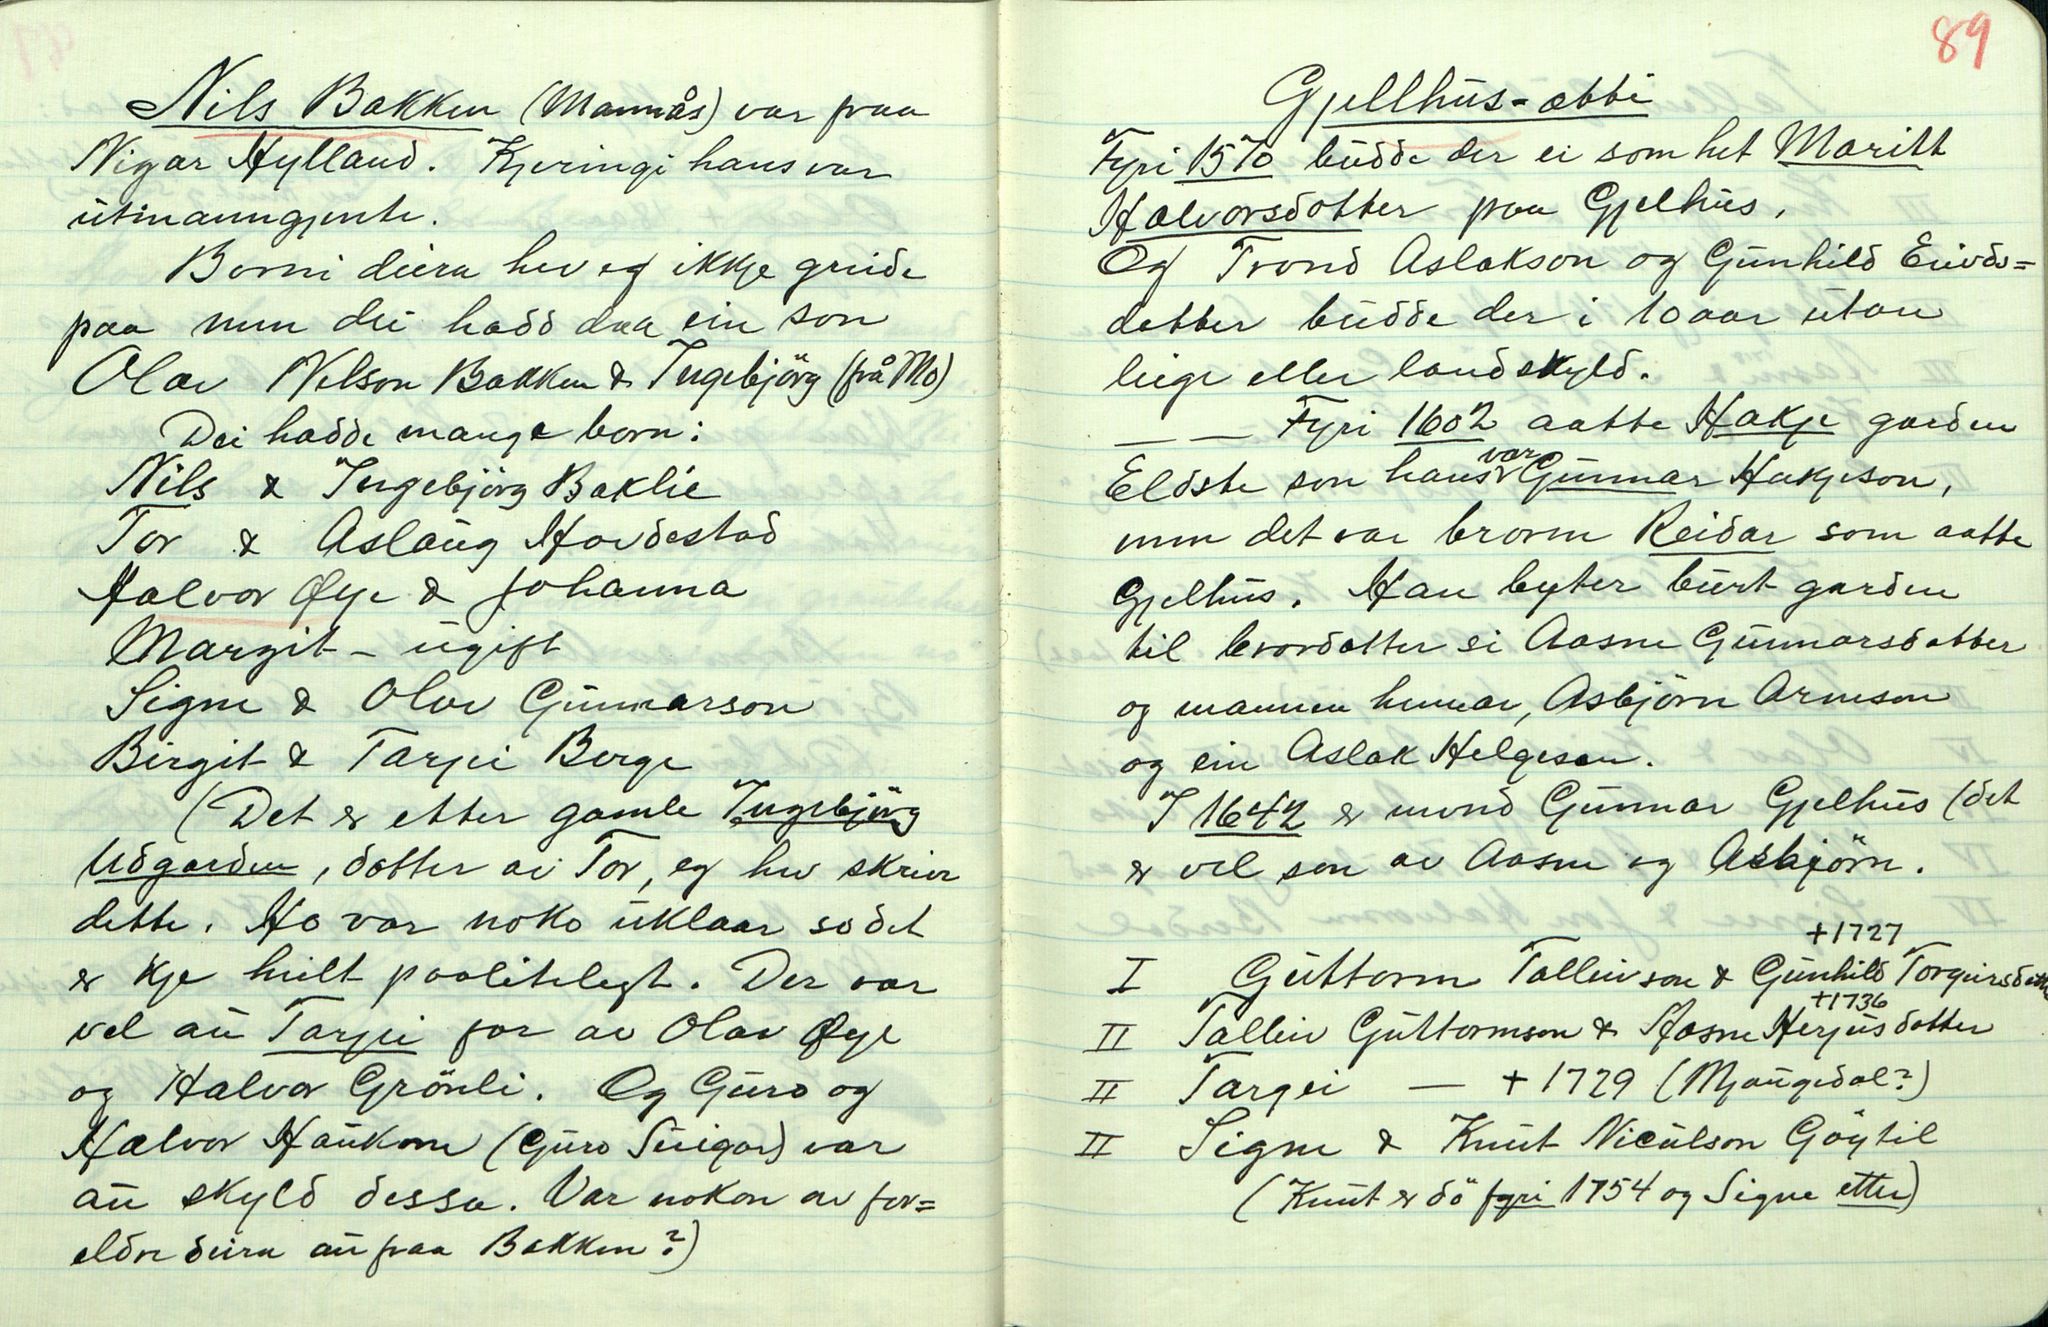 Nils Bakken (Mannås) var fraa
Nigar Hylland. Kjeringi hans var
utmanngjente.
Borni deira hev eg ikkje greide
paa men dei hadd daa ein son
Olav Nilson Bakken & Ingebjörg (frå Mo)
Dei hadde mange born:
Nils & Ingebjörg Baklie
Tor & Aslaug Hovdestad
Halvor Øye & Johanna
Margit - ugift
Signe & Olav Gunnarson
Birgit & Targei Berge
(Det er etter gamle Ingebjörg
Udgarden, dotter av Tor, eg hev skrive
dette. Ho var noko uklaar so det
er kje heilt paalitelegt. Der var
vel au Targei far av Olav Øye
og Halvor Grönli. Og Guro og
Halvor Haukom (Guro Suigard) var
au skyld dessa. Var nokon av for=
eldre deira au fraa Bakken?)
89
Gjellhus-ætti
Fyri 1570 budde der ei som het Maritt
Halvorsdotter paa Gjelhus.
Og Trond Aslakson og Gunhild Eivds=
dotter budde der i 10 aar utan
leige eller landskyld.
— — Fyri 1602 aatte Hakje garden
Eldste son hans var Gunnar Hakjeson,
men det var broren Reidar som aatte
Gjelhus. Han byter burt garden
til brordotter si Aasne Gunnarsdotter
og mannen hennar, Asbjörn Arneson
og ein Aslak Helgeson.
I 1642 er nemnd Gunnar Gjelhus (det
er vel son av Aasne og Asbjörn.
+1727
I Guttorm Talleivson & Gunhild Torgeirsdotter
+1736
II Talleiv Guttormson & Aasne Herjusdotter
II Targei — +1729 (Mjaugedal?)
II Signe & Knut Niculson Göytil
(Knut er dö fyri 1754 og Signe etter)